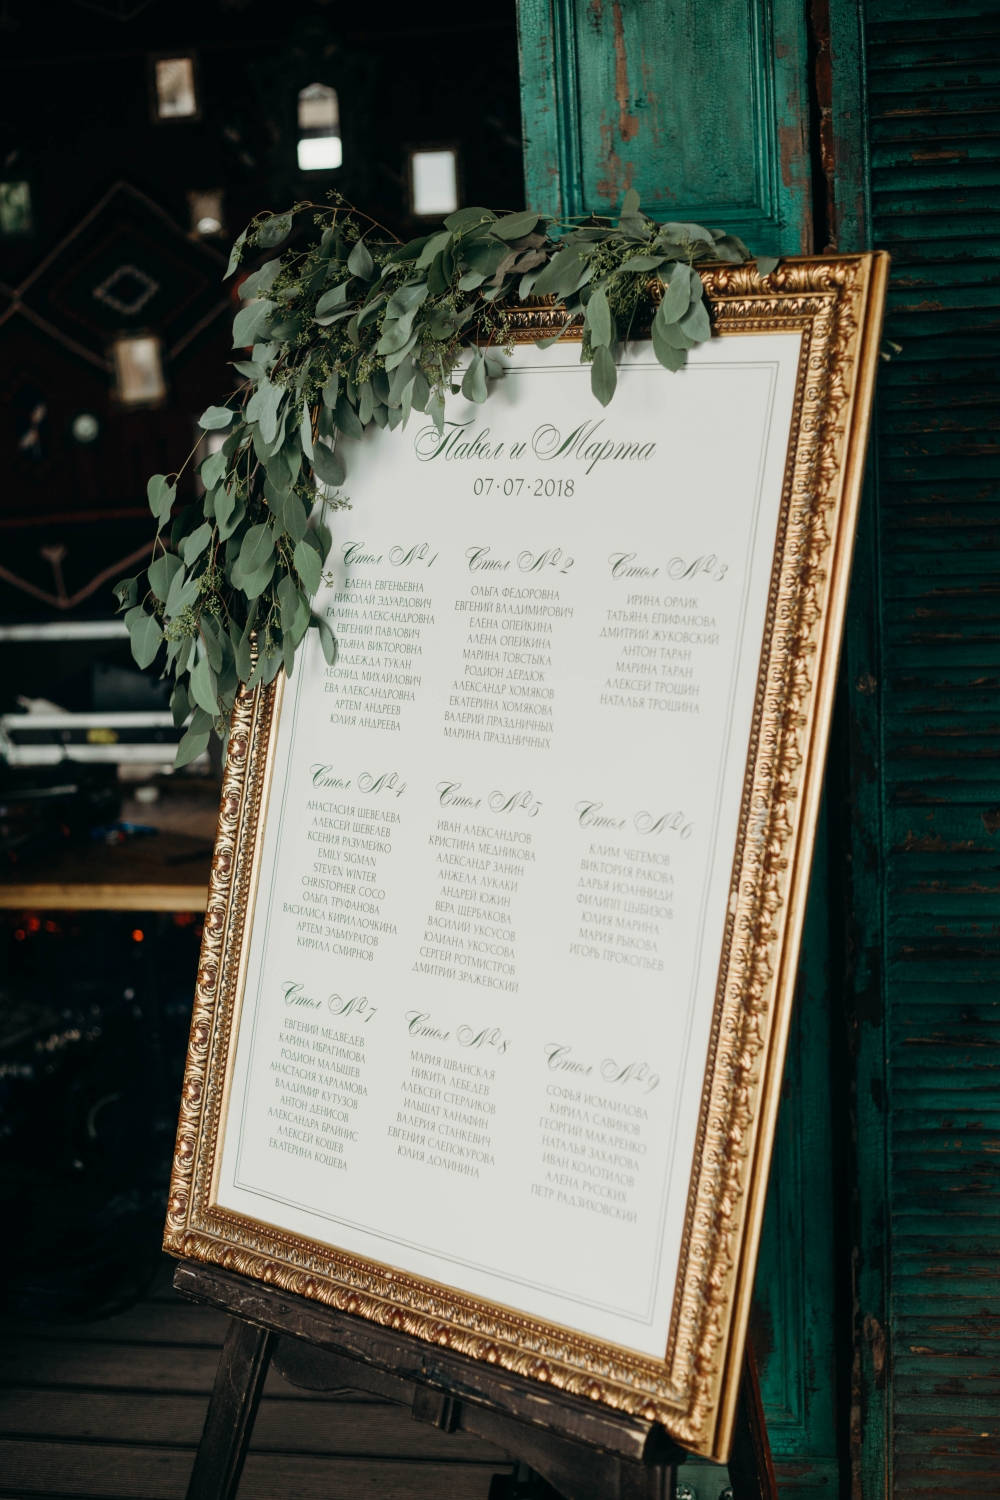 Павел и Марта
07·07·2018
Стол №1
ЕЛЕНА ЕВГЕНЬЕВНА
НИКОЛАЙ ЭДУАРДОВИЧ
ГАЛИНА АЛЕКСАНДРОВНА
ЕВГЕНИЙ ПАВЛОВИЧ
ТАТЬЯНА ВИКТОРОВНА
НАДЕЖДА ТУКАН
ЛЕОНИД МИХАЙЛОВИЧ
ЕВА АЛЕКСАНДРОВНА
АРТЕМ АНДРЕЕВ
ЮЛИЯ АНДРЕЕВА
Стол №2
ОЛЬГА ФЕДОРОВНА
ЕВГЕНИЙ ВЛАДИМИРОВИЧ
ЕЛЕНА ОПЕЙКИНА
АЛЕНА ОПЕЙКИНА
МАРИНА ТОВСТЫКА
РОДИОН ДЕРДЮК
АЛЕКСАНДР ХОМЯКОВ
ЕКАТЕРИНА ХОМЯКОВА
ВАЛЕРИЙ ПРАЗДНИЧНЫХ
МАРИНА ПРАЗДНИЧНЫХ
Стол №3
ИРИНА ОРЛИК
ТАТЬЯНА ЕПИФАНОВА
ДМИТРИЙ ЖУКОВСКИЙ
АНТОН ТАРАН
МАРИНА ТАРАН
АЛЕКСЕЙ ТРОШИН
НАТАЛЬЯ ТРОШИНА
Стол №4
АНАСТАСИЯ ШЕВЕЛЕВА
АЛЕКСЕЙ ШЕВЕЛЕВ
КСЕНИЯ РАЗУМЕЙКО
EMILY SIGMAN
STEVEN WINTER
CHRISTOPHER COCO
ОЛЬГА ТРУФАНОВА
ВАСИЛИСА КИРИЛЛОЧКИНА
АРТЕМ ЭЛЬМУРАТОВ
КИРИЛЛ СМИРНОВ
Стол №5
ИВАН АЛЕКСАНДРОВ
КРИСТИНА МЕДНИКОВА
АЛЕКСАНДР ЗАНИН
АНЖЕЛА ЛУКАКИ
АНДРЕЙ ЮЖИН
ВЕРА ЩЕРБАКОВА
ВАСИЛИЙ УКСУСОВ
ЮЛИАНА УКСУСОВА
СЕРГЕЙ РОТМИСТРОВ
ДМИТРИЙ ЗРАЖЕВСКИЙ
Стол №6
КЛИМ ЧЕГЕМОВ
ВИКТОРИЯ РАКОВА
ДАРЬЯ ИОАННИДИ
ФИЛИПП ЦЫБИЗОВ
ЮЛИЯ МАРИНА
МАРИЯ РЫКОВА
ИГОРЬ ПРОКОПЬЕВ
Стол №7
ЕВГЕНИЙ МЕДВЕДЕВ
КАРИНА ИБРАГИМОВА
РОДИОН МАЛЫШЕВ
АНАСТАСИЯ ХАРЛАМОВА
ВЛАДИМИР КУТУЗОВ
АНТОН ДЕНИСОВ
АЛЕКСАНДРА БРАЙНИС
АЛЕКСЕЙ КОШЕВ
ЕКАТЕРИНА КОШЕВА
Стол №8
МАРИЯ ШВАНСКАЯ
НИКИТА ЛЕБЕДЕВ
АЛЕКСЕЙ СТЕРЛИКОВ
ИЛЬШАТ ХАНАФИН
ВАЛЕРИЯ СТАНКЕВИЧ
ЕВГЕНИЯ СЛЕПОКУРОВА
ЮЛИЯ ДОЛИНИНА
Стол №9
СОФЬЯ ИСМАИЛОВА
КИРИЛЛ САВИНОВ
ГЕОРГИЙ МАКАРЕНКО
НАТАЛЬЯ ЗАХАРОВА
ИВАН КОЛОТИЛОВ
АЛЕНА РУССКИХ
ПЕТР РАДЗИХОВСКИЙ